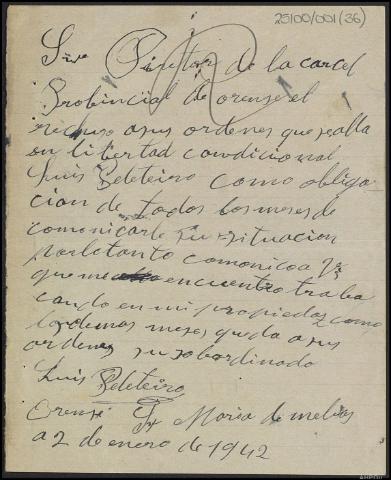 25100/001(36)
Sr Diretor de la carcel
Probincial de orense el
recluso a sus ordenes que se alla
en libertad condicional
Luis Beleteiro como obliga
cion de todos los meses de
comunicarle su situacion
por lo tanto comonico a Vs
que me encuentro traba
cando en mi propiedaz como
los demas meses queda a sus
ordenes su sobordinado
Luis Beleteiro
Orense Sta Maria de melias
a 2 de enero de 1942